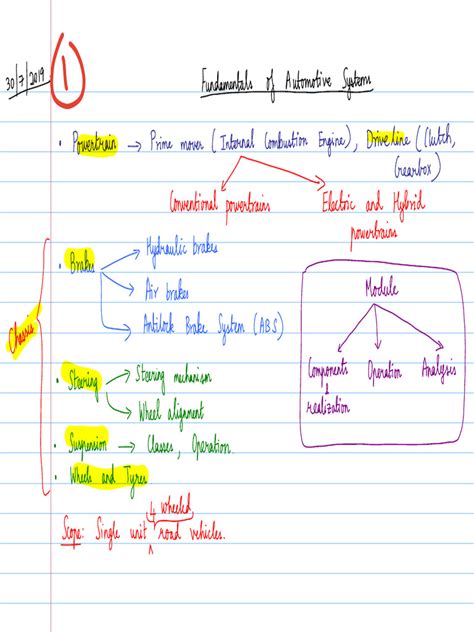 30/7/2019
1
Fundamentals of Automotive Systems
• Powertrain → Prime mover (Internal Combustion Engine), Driveline (Clutch,
Gearbox)
Conventional powertrains
Electric and Hybrid
powertrains
Chassis
• Brakes
Hydraulic brakes
Air brakes
Antilock Brake System (ABS)
Module
Components
&
realization
Operation
Analysis
• Steering
Steering mechanism
Wheel alignment
• Suspension → Classes, Operation.
• Wheels and Tyres
4 wheeled
Scope: Single unit ^ road vehicles.